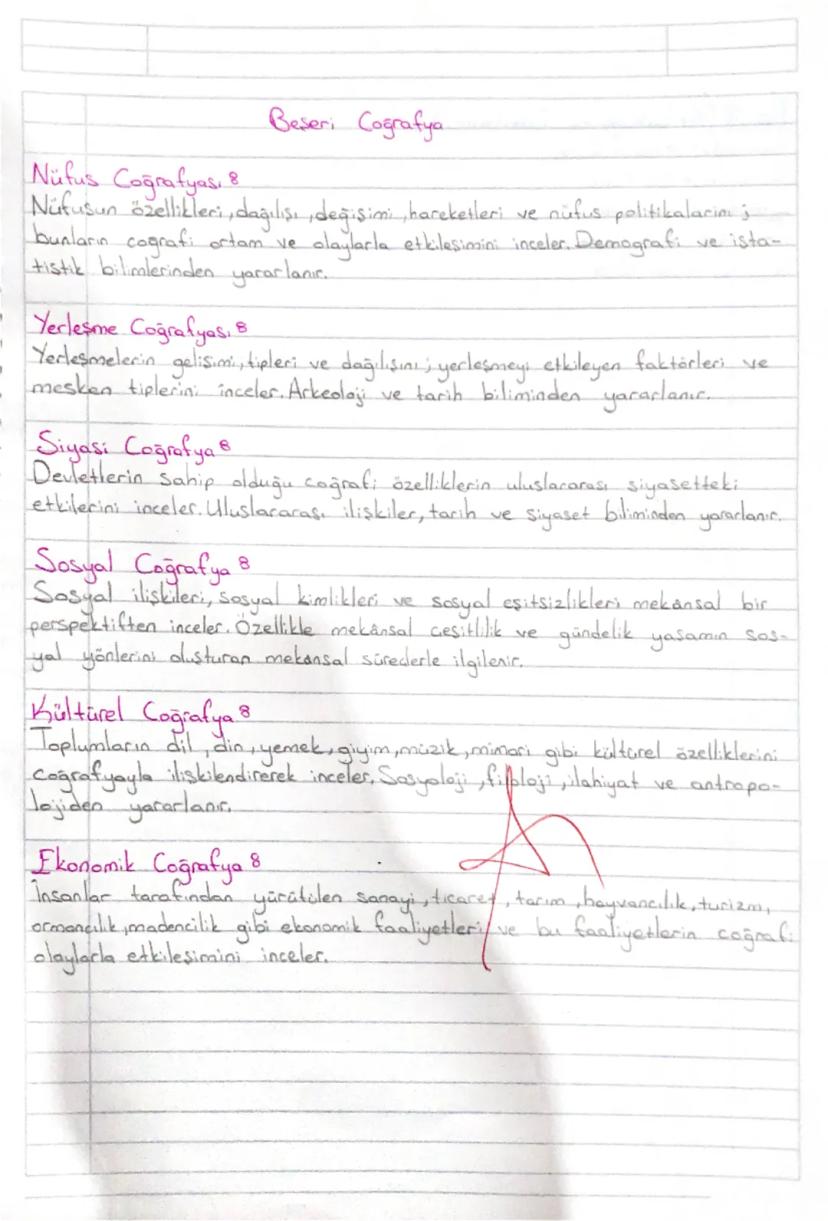 Beşeri Coğrafya
Nüfus Coğrafyası :
Nüfusun özellikleri, dağılışı, değişimi, hareketleri ve nüfus politikalarını ;
bunların coğrafi ortam ve olaylarla etkileşimini inceler. Demografi ve ista-
tistik bilimlerinden yararlanır.
Yerleşme Coğrafyası :
Yerleşmelerin gelişimi, tipleri ve dağılışını ; yerleşmeyi etkileyen faktörleri ve
mesken tiplerini inceler. Arkeoloji ve tarih biliminden yararlanır.
Siyasi Coğrafya :
Devletlerin sahip olduğu coğrafi özelliklerin uluslararası siyasetteki
etkilerini inceler. Uluslararası ilişkiler, tarih ve siyaset biliminden yararlanır.
Sosyal Coğrafya :
Sosyal ilişkileri, sosyal kimlikleri ve sosyal eşitsizlikleri mekânsal bir
perspektiften inceler. Özellikle mekânsal çeşitlilik ve gündelik yaşamın sos-
yal yönlerini oluşturan mekansal süreçlerle ilgilenir.
Kültürel Coğrafya :
Toplumların dil, din, yemek, giyim, müzik, mimari gibi kültürel özelliklerini
coğrafyayla ilişkilendirerek inceler. Sosyoloji, filoloji, ilahiyat ve antropo-
lojiden yararlanır.
Ekonomik Coğrafya :
İnsanlar tarafından yürütülen sanayi, ticaret, tarım, hayvancılık, turizm,
ormancılık, madencilik gibi ekonomik faaliyetleri ve bu faaliyetlerin coğrafi
olaylarla etkileşimini inceler.